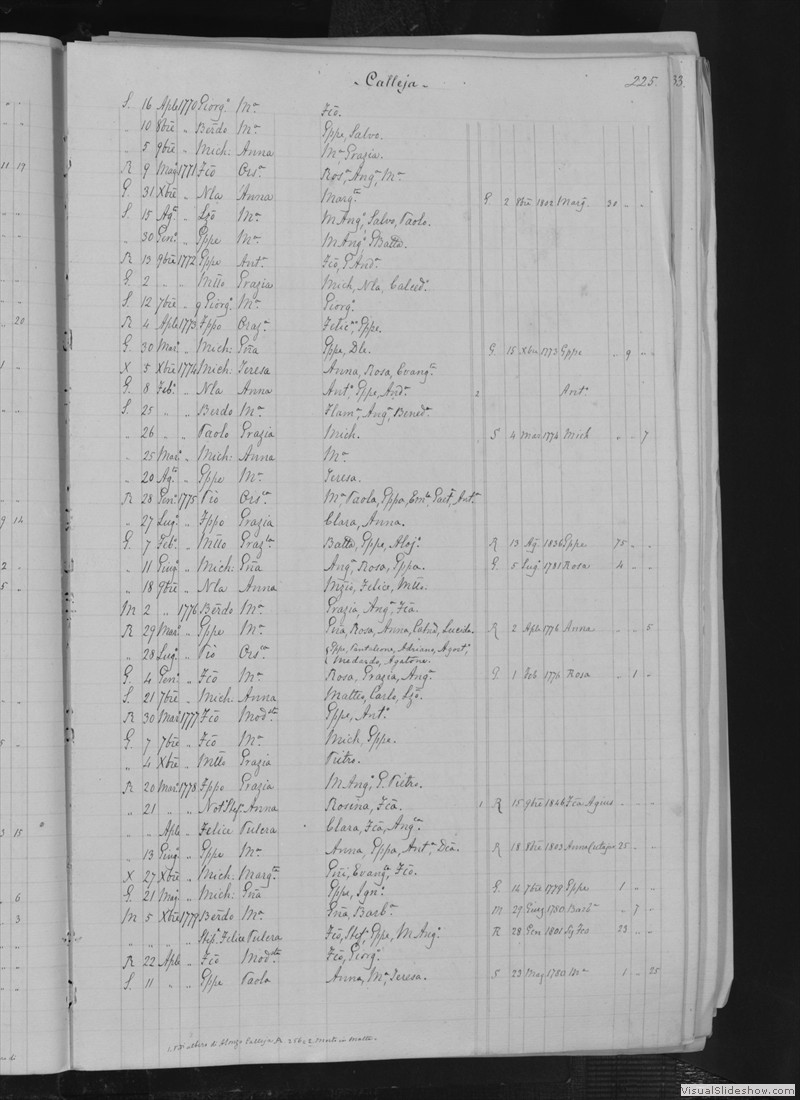 - Calleja - 225. 33
S. 16 Aple 1770 Giorgo Ma Fco.
" 10 8bre " Berdo Ma Gppe, Salvo.
" 5 9bre " Mich: Anna Ma Grazia.
11 19 R 9 Mago 1771 Fco Orsa Rosa, Anga, Ma
G. 31 Xbre " Nla Anna Margta G. 2 8bre 1802 Marg 30 " "
S. 15 Ago " Lzo Ma M Anga, Salvo, Paolo.
" 30 Geno " Gppe Ma M Anga, GBatta.
R 13 9bre 1772 Gppe Anta Fco, G Anda
G. 2 " " Mtto Grazia Mich, Nla, Calcido
S. 12 7bre " q Giorgo Ma Giorgo
20 R 4 Aple 1773 Fppo Graza Felice, Gppe.
G. 30 Maro " Mich: Gna Gppe, Dle. G. 15 Xbre 1773 Gppe " 9 "
X 5 Xbre 1774 Mich: Teresa Anna, Rosa, Evangta
G. 8 Febo " Nla Anna Anto, Gppe, Anda 2 Anto
S. 25 " " Berdo Ma Flama, Anga, Bened
" 26 " " Paolo Grazia Mich. S 4 Mar 1774 Mich " " 7
" 25 Maro " Mich: Anna Ma
" 20 Ago " Gppe Ma Teresa.
R 28 Geno 1775 Pio Orsa Ma, Paola, Gppa, Ema, Gaet, Anta
9 14 " 27 Lugo " Fppo Grazia Clara, Anna.
G. 7 Febo " Mtto Grazta Batta, Gppe, Aloj. R 13 Ago 1836 Gppe 75 " "
2 " 11 Giugo " Mich: Gna Anga, Rosa, Gppa. G. 5 Lugo 1781 Rosa 4 " "
5 " 18 9bre " Nla Anna Felice, Mtto.
M 2 " 1776 Berdo Ma Grazia, Anga, Fca.
R 29 Maro " Gppe Ma Gna, Rosa, Anna, Catad, Lucida. R 2 Aple 1776 Anna " " 5
" 28 Lugo " Pio Orsa Gppe, Pantaleone, Adriano, Agost,
Medardo, Agatone.
G. 4 Geno " Fco Ma Rosa, Grazia, Anga G. 1 Feb 1776 Rosa " 1 "
S. 21 7bre " Mich: Anna Matteo, Carlo, Lzo.
R 30 Mar 1777 Fco Modsta Gppe, Anto
5 G. 7 7bre " Fco Ma Mich, Gppe.
" 4 Xbre " Mtto Grazia Pietro.
R 20 Maro 1778 Fppo Grazia M Anga, G. Pietro.
" 21 " " Noto Stefo Anna Rosina, Fca. 1 R 15 9bre 1846 Fca Agius " "
3 15 " " Aple " Felice Pulera Clara, Fca, Anga
" 13 Giugo " Gppe Ma Anna, Gppa, Anta, Dca. R 18 8bre 1803 Anna 25 " "
X 27 Xbre " Mich: Margta Gni, Evangta, Fco.
6 G. 21 Mago " Mich: Gna Gppe, Igno. G. 14 7bre 1779 Gppe 1 " "
3 M 5 Xbre 1779 Berdo Ma Gna, Barba M 29 Giug 1780 Barba " 7 "
" " " Stefo Felice Pulera Fco, Stef, Gppe, M Anga R 28 Gen 1801 Fco 23 " "
R 22 Aple " Fco Modsta Fco, Giorgo
S. 11 " " Gppe Paola Anna, Ma, Teresa. S 23 Mag 1780 Ma 1 " 25
di Alonzo Calleja 2 Morto in Malta.
VisualSlideshow.com